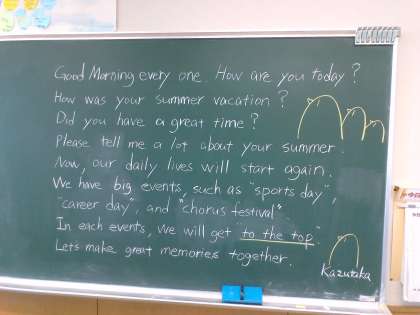 Good Morning every one. How are you today?
How was your summer vacation?
Did you have a great time?
Please tell me a lot about your summer.
Now, our daily lives will start again.
We have big events, such as "sports day",
"career day", and "chorus festival"
In each events, we will get to the top.
Let's make great memories together.
Kazutaka